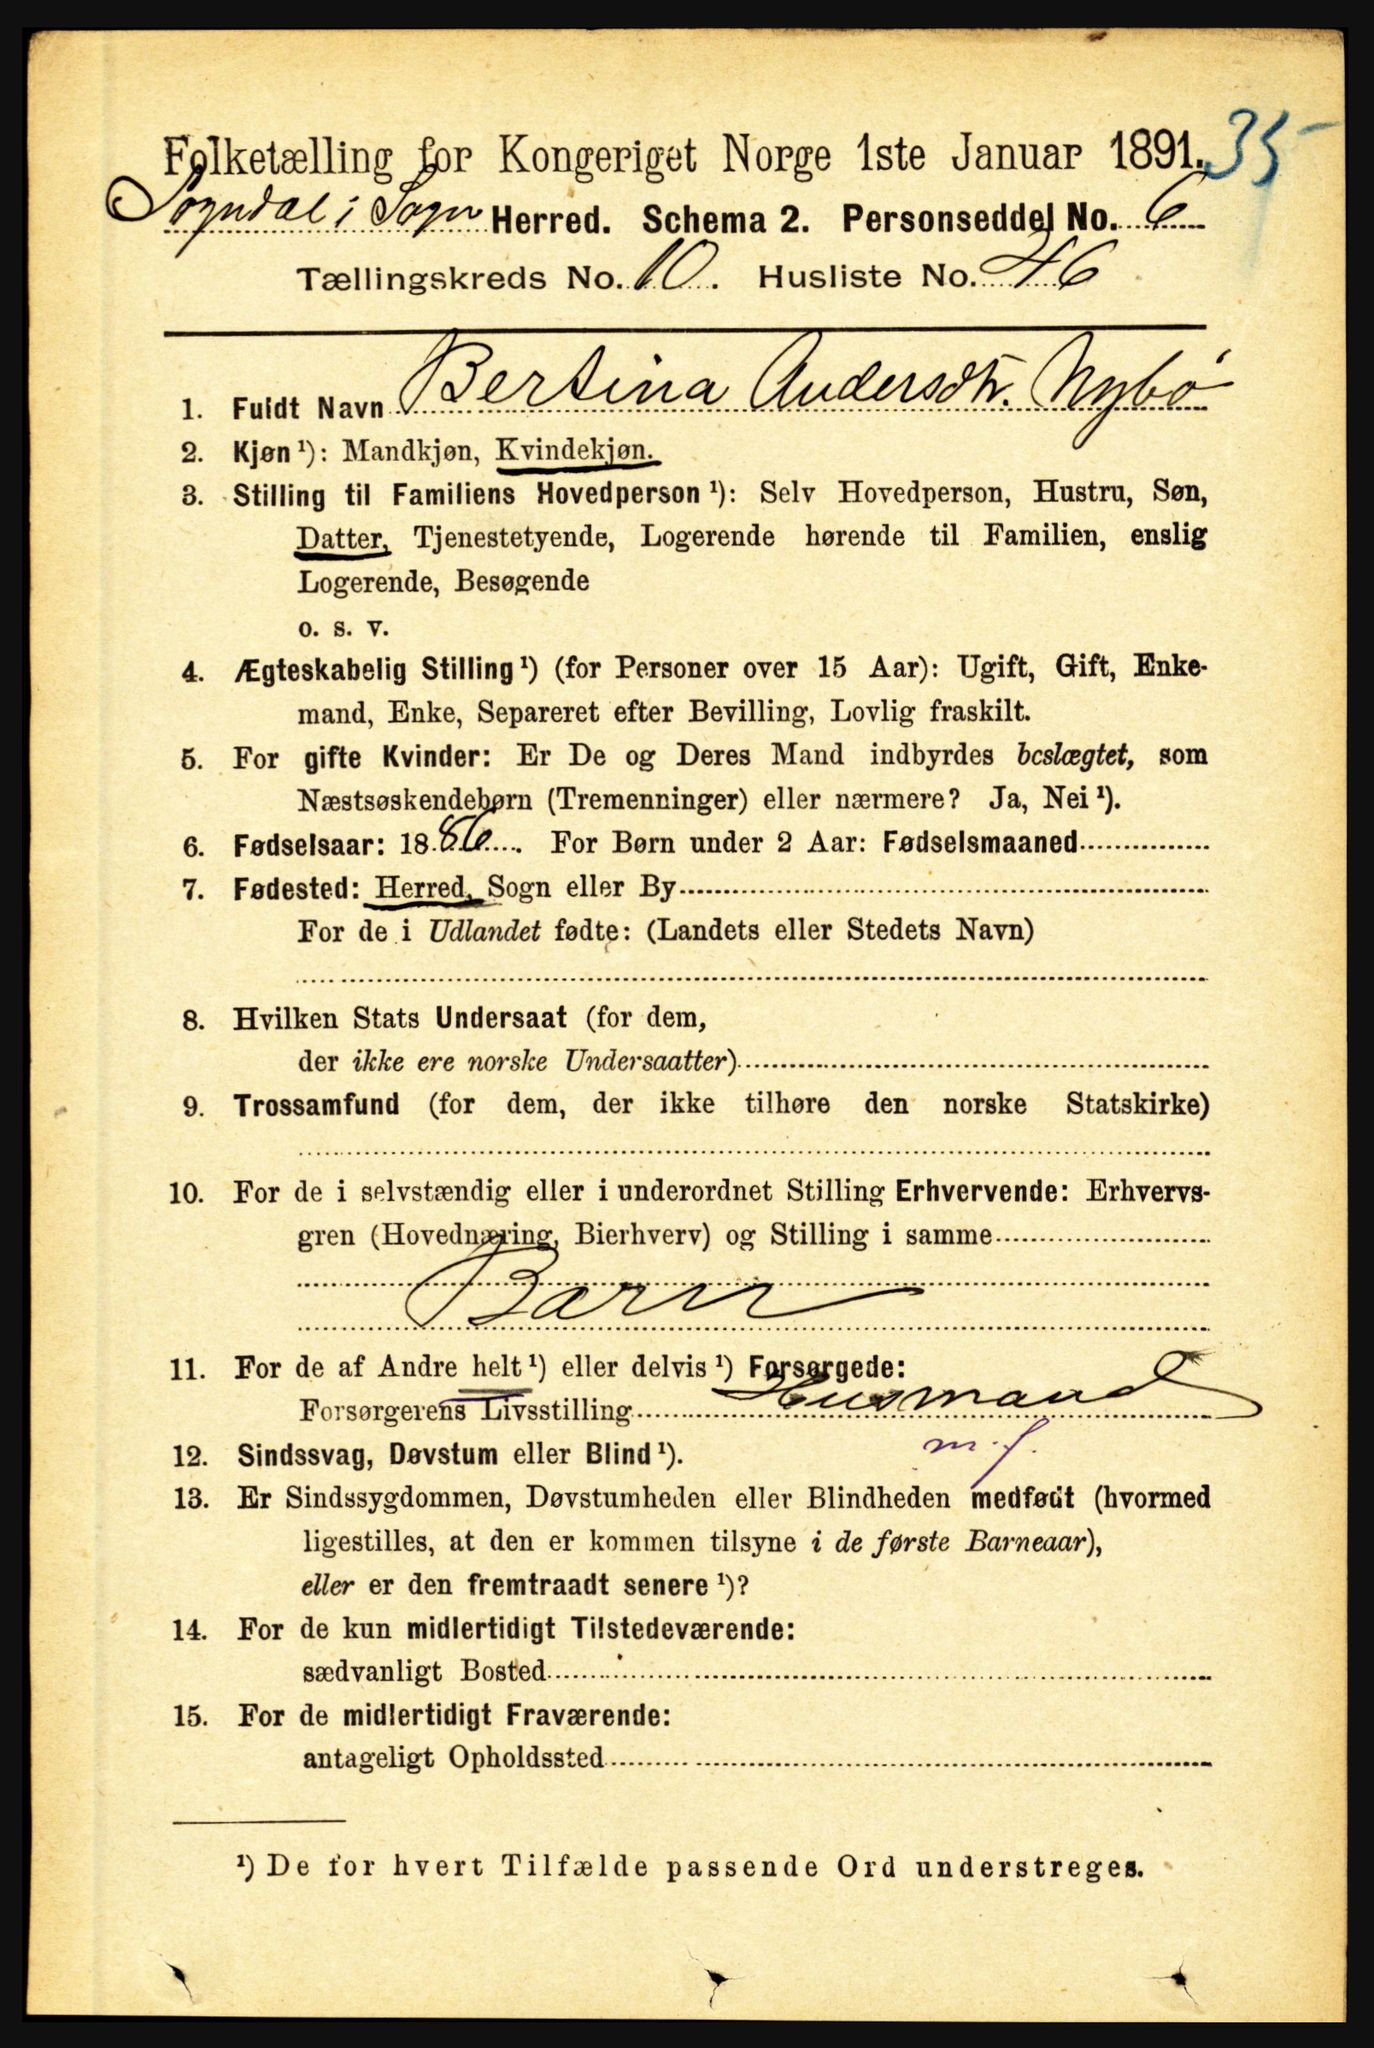 35
Folketælling for Kongeriget Norge 1ste Januar 1891.
Sogndal i Sogn Herred. Schema 2. Personseddel No. 6
Tællingskreds No. 10. Husliste No. 46
1. Fuldt Navn Bertina Andersdtr. Nybø
2. Kjøn ¹): Mandkjøn, Kvindekjøn.
3. Stilling til Familiens Hovedperson ¹): Selv Hovedperson, Hustru, Søn,
Datter, Tjenestetyende, Logerende hørende til Familien, enslig
Logerende, Besøgende
o. s. v.
4. Ægteskabelig Stilling ¹) (for Personer over 15 Aar): Ugift, Gift, Enke-
mand, Enke, Separeret efter Bevilling, Lovlig fraskilt.
5. For gifte Kvinder: Er De og Deres Mand indbyrdes beslægtet, som
Næstsøskendebørn (Tremenninger) eller nærmere? Ja, Nei ¹).
6. Fødselsaar: 1886. For Børn under 2 Aar: Fødselsmaaned
7. Fødested: Herred, Sogn eller By
For de i Udlandet fødte: (Landets eller Stedets Navn)
8. Hvilken Stats Undersaat (for dem,
der ikke ere norske Undersaatter)
9. Trossamfund (for dem, der ikke tilhøre den norske Statskirke)
10. For de i selvstændig eller i underordnet Stilling Erhvervende: Erhvervs-
gren (Hovednæring, Bierhverv) og Stilling i samme
Barn
11. For de af Andre helt ¹) eller delvis ¹) Forsørgede:
Forsørgerens Livsstilling Husmand
m. f.
12. Sindssvag, Døvstum eller Blind ¹).
13. Er Sindssygdommen, Døvstumheden eller Blindheden medfødt (hvormed
ligestilles, at den er kommen tilsyne i de første Barneaar),
eller er den fremtraadt senere ¹)?
14. For de kun midlertidigt Tilstedeværende:
sædvanligt Bosted
15. For de midlertidigt Fraværende:
antageligt Opholdssted
¹) De for hvert Tilfælde passende Ord understreges.